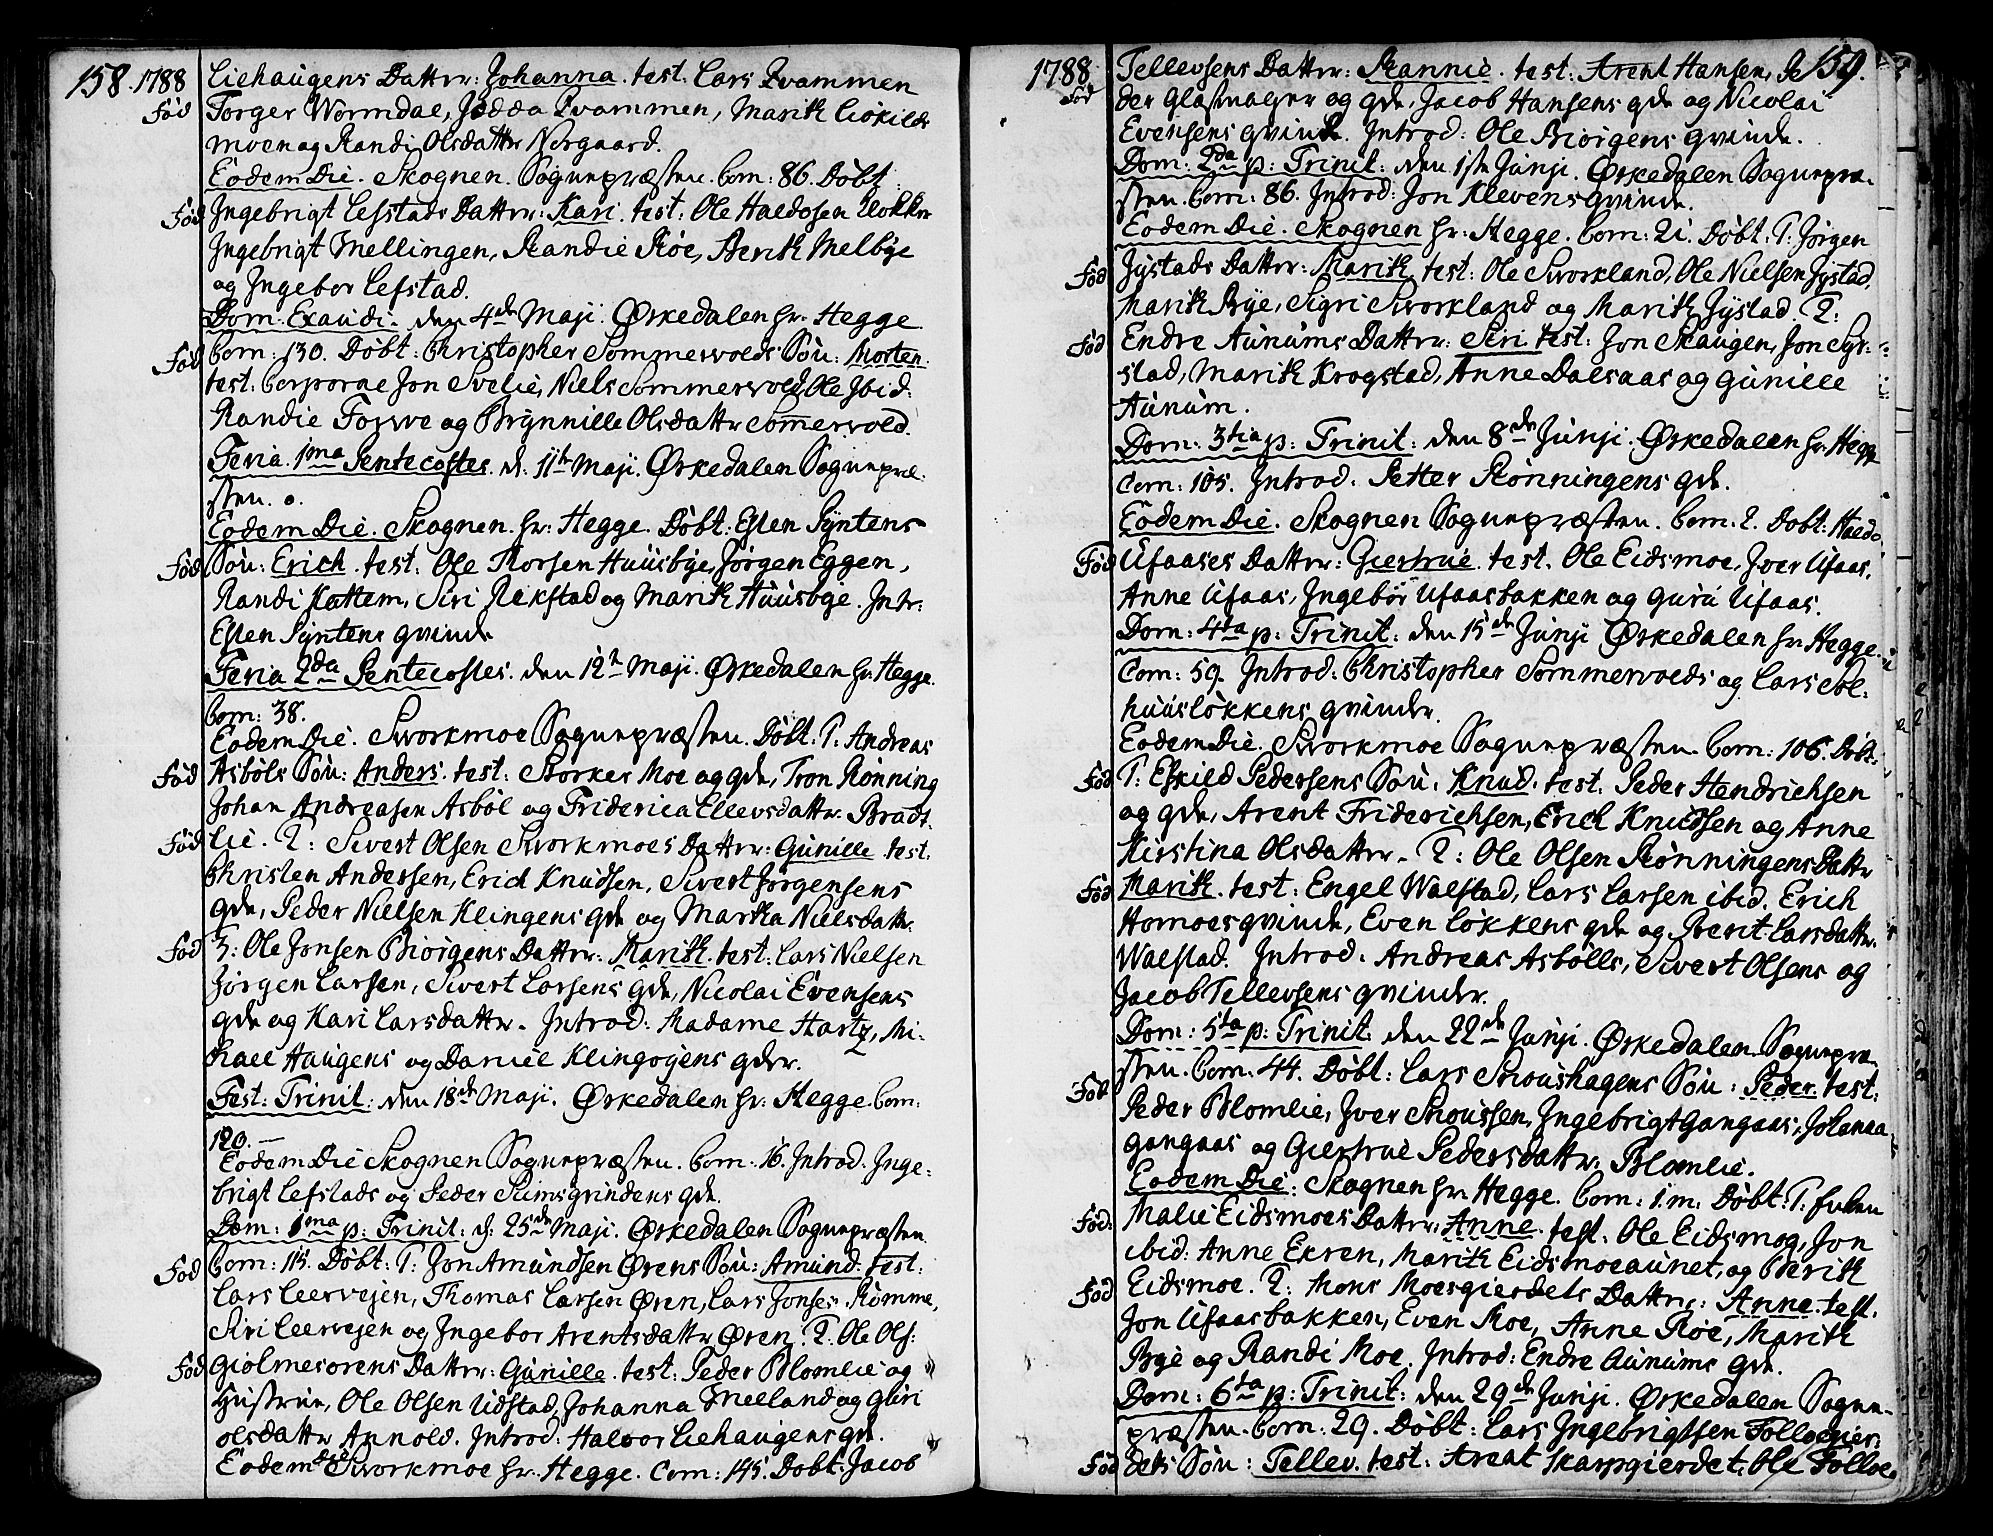 158. 1788
Liehaugens Datter: Johanna. test: Lars Kvammen
Fød Torger Wormdal, Jødda Kvammen, Marith Løkild
moen og Randi Olsdatter Norgaard.
Eodem Die. Skognen. Sognepræsten. Com: 86. Døbt
Fød Ingebrigt Lefstads Datter: Kari. test: Ole Haldosen Klokker
Ingebrigt Mellingen, Randie Røe, Berith Melbye
og Ingebor Lefstad.
Dom. Exaudi. den 4de Maji. Ørkedalen hr: Hegge
Fød Com: 130. Døbt: Christopher Sommervolds Søn: Morten.
test: Corporal Jon Svelie, Niels Sommervold, Ole Ibid:
Randie Forwe og Brynnille Olsdatter Somervold.
Feria 1ma Pentecostes. d: 11te Maji. Ørkedalen Sognepræ-
sten. o.
Eodem Die. Skognen. hr: Hegge. Døbt: Esten Syntens
Fød Søn: Erich. test: Ole Thorsen Huusbye, Jørgen Eggen,
Randi Kattem, Siri Rekstad og Marith Huusbye. Intr:
Esten Syntens qvinde
Feria 2da Pentecostes. den 12te Maji. Ørkedalen hr: Hegge.
Com: 38.
Eodem Die. Sworkmoe Sognepræsten. Døbt: 1: Andreas
Fød Asbøls Søn: Anders. test: Storker Moe og qde, Tron Rønning
Johan Andreasen Asbøl og Friderica Ellevsdatter Bradt-
Fød lie. 2: Sivert Olsen Sworkmoes Datter: Gunille. test.
Christen Andersen, Erich Knudsen, Sivert Jørgensens
qde, Peder Nielsen Klingens qde og Martha Nielsdatter.
Fød 3: Ole Jonsen Biørgens Datter: Marith. test: Lars Nielsen
Jørgen Larsen, Sivert Larsens qde, Nicolai Evensens
qde og Kari Larsdatter. Introd: Madame Hartz, Mi-
kael Haugens og Daniel Klingøyens qder.
Fest: Trinit: den 18de Maji. Ørkedalen hr: Hegge. Com:
120.
Eodem Die Skognen Sognepræsten. Com: 16. Introd: Inge-
brigt Lefstads og Peder Rimsgrindens qde.
Dom: 1ma p: Trinit: d: 25de Maji. Ørkedalen Sognepræsten
Fød Com: 115. Døbt: 1: Jon Amundsen Ørens Søn: Amund. test:
Lars Leervejen, Thomas Larsen Øren, Lars Jonsen Rømme,
Siri Leervejen og Ingebor Arentsdatter Øren. 2: Ole Ols:
Fød Giølmesørens Datter: Gunille. test: Peder Blomlie og
Hustrue, Ole Olsen Udstad, Johanna Melland og Guri
olsdatter Arnold. Introd: Halvor Liehaugens qde.
Eodem die Sworkmoe hr: Hegge. Com: 145. Døbt: Jacob
1788. 159.
Fød Tellevsens Datter: Rannie. test: Arent Hansen, Pe-
der Glasmager og qde, Jacob Hansens qde og Nicolai
Evensens qvinde. Introd: Ole Biørgens qvinde.
Dom: 2da p: Trinit: den 1ste Junji. Ørkedalen Sognepræ-
sten. Com: 86. Introd: Jon Klevens qvinde.
Eodem Die. Skognen hr: Hegge. Com: 21. Døbt: 1: Jørgen
Fød Jystads Datter: Marith. test: Ole Sworkland, Ole Nielsen Jystad,
Marith Bye, Sigri Sworkland og Marith Jystad. 2:
Fød Endre Aunums Datter: Siri test: Jon Skaugen, Jon Syr-
stad, Marith Krogstad, Anne Dalsaas og Gunille
Aunum.
Dom: 3tia p: Trinit: den 8de Junji. Ørkedalen hr: Hegge
Com: 105. Introd: Petter Rønningens qde.
Eodem Die. Skognen Sognepræsten. Com: 2. Døbt: Haldo
Fød Ufaases Datter: Giertrue. test. Ole Eidsmoe, Iver Ufaas,
Anne Ufaas, Ingebor Ufaasbakken og Guru Ufaas.
Dom: 4ta p: Trinit: den 15de Junji Ørkedalen hr: Hegge.
Com: 59. Introd: Christopher Sommervolds og Lars Sol-
huusløkkens qvinder.
Eodem Die. Sworkmoe Sognepræsten. Com: 106. Døbt:
Fød 1: Eskild Pedersens Søn: Knud. test. Peder Hendrichsen
og qde, Arent Friderichsen, Erich Knudsen og Anne
Kirstina Olsdatter. 2: Ole Olsen Rønningens Datter
Fød Marith. test: Engel Walstad, Lars Larsen ibid. Erich
Homoes qvinde, Even Løkkens qde og Berit Larsdatter
Walstad. Introd: Andreas Asbølls, Sivert Olsens og
Jacob Tellevsens qvinder.
Dom: 5ta p: Trinit: den 22de Junji. Ørkedalen Sognepræ-
sten. Com. 44. Døbt: Lars Snoushagens Søn: Peder. test:
Fød Peder Blomlie, Iver Snoussen, Ingebrigt Gangaas, Johanna
Gangaas og Giertrue Pedersdatter Blomlie.
Eodem Die: Skognen hr: Hegge. Com: 1. m. Døbt: 1:
Fød: Malie Eidsmoes Datter: Anne. test: Ole Eidsmoe, Jon
ibid: Anne Ekren, Marith Eidsmoeaunet, og Berith
Fød Eidsmoe. 2: Mons Moesgierdets Datter: Anne. test.
Jon Ufaasbakken, Even Roe, Anne Røe, Marith
Bye og Randi Moe. Introd: Endre Aunums qde.
Dom: 6ta p: Trinit: den 29de Junji. Ørkedalen Sogne-
præsten. Com: 29. Døbt: Lars Ingebrigtsen Folloegier-
Fød dets Søn: Tellev. test: Arent Skarpgierdet, Ole Folloe